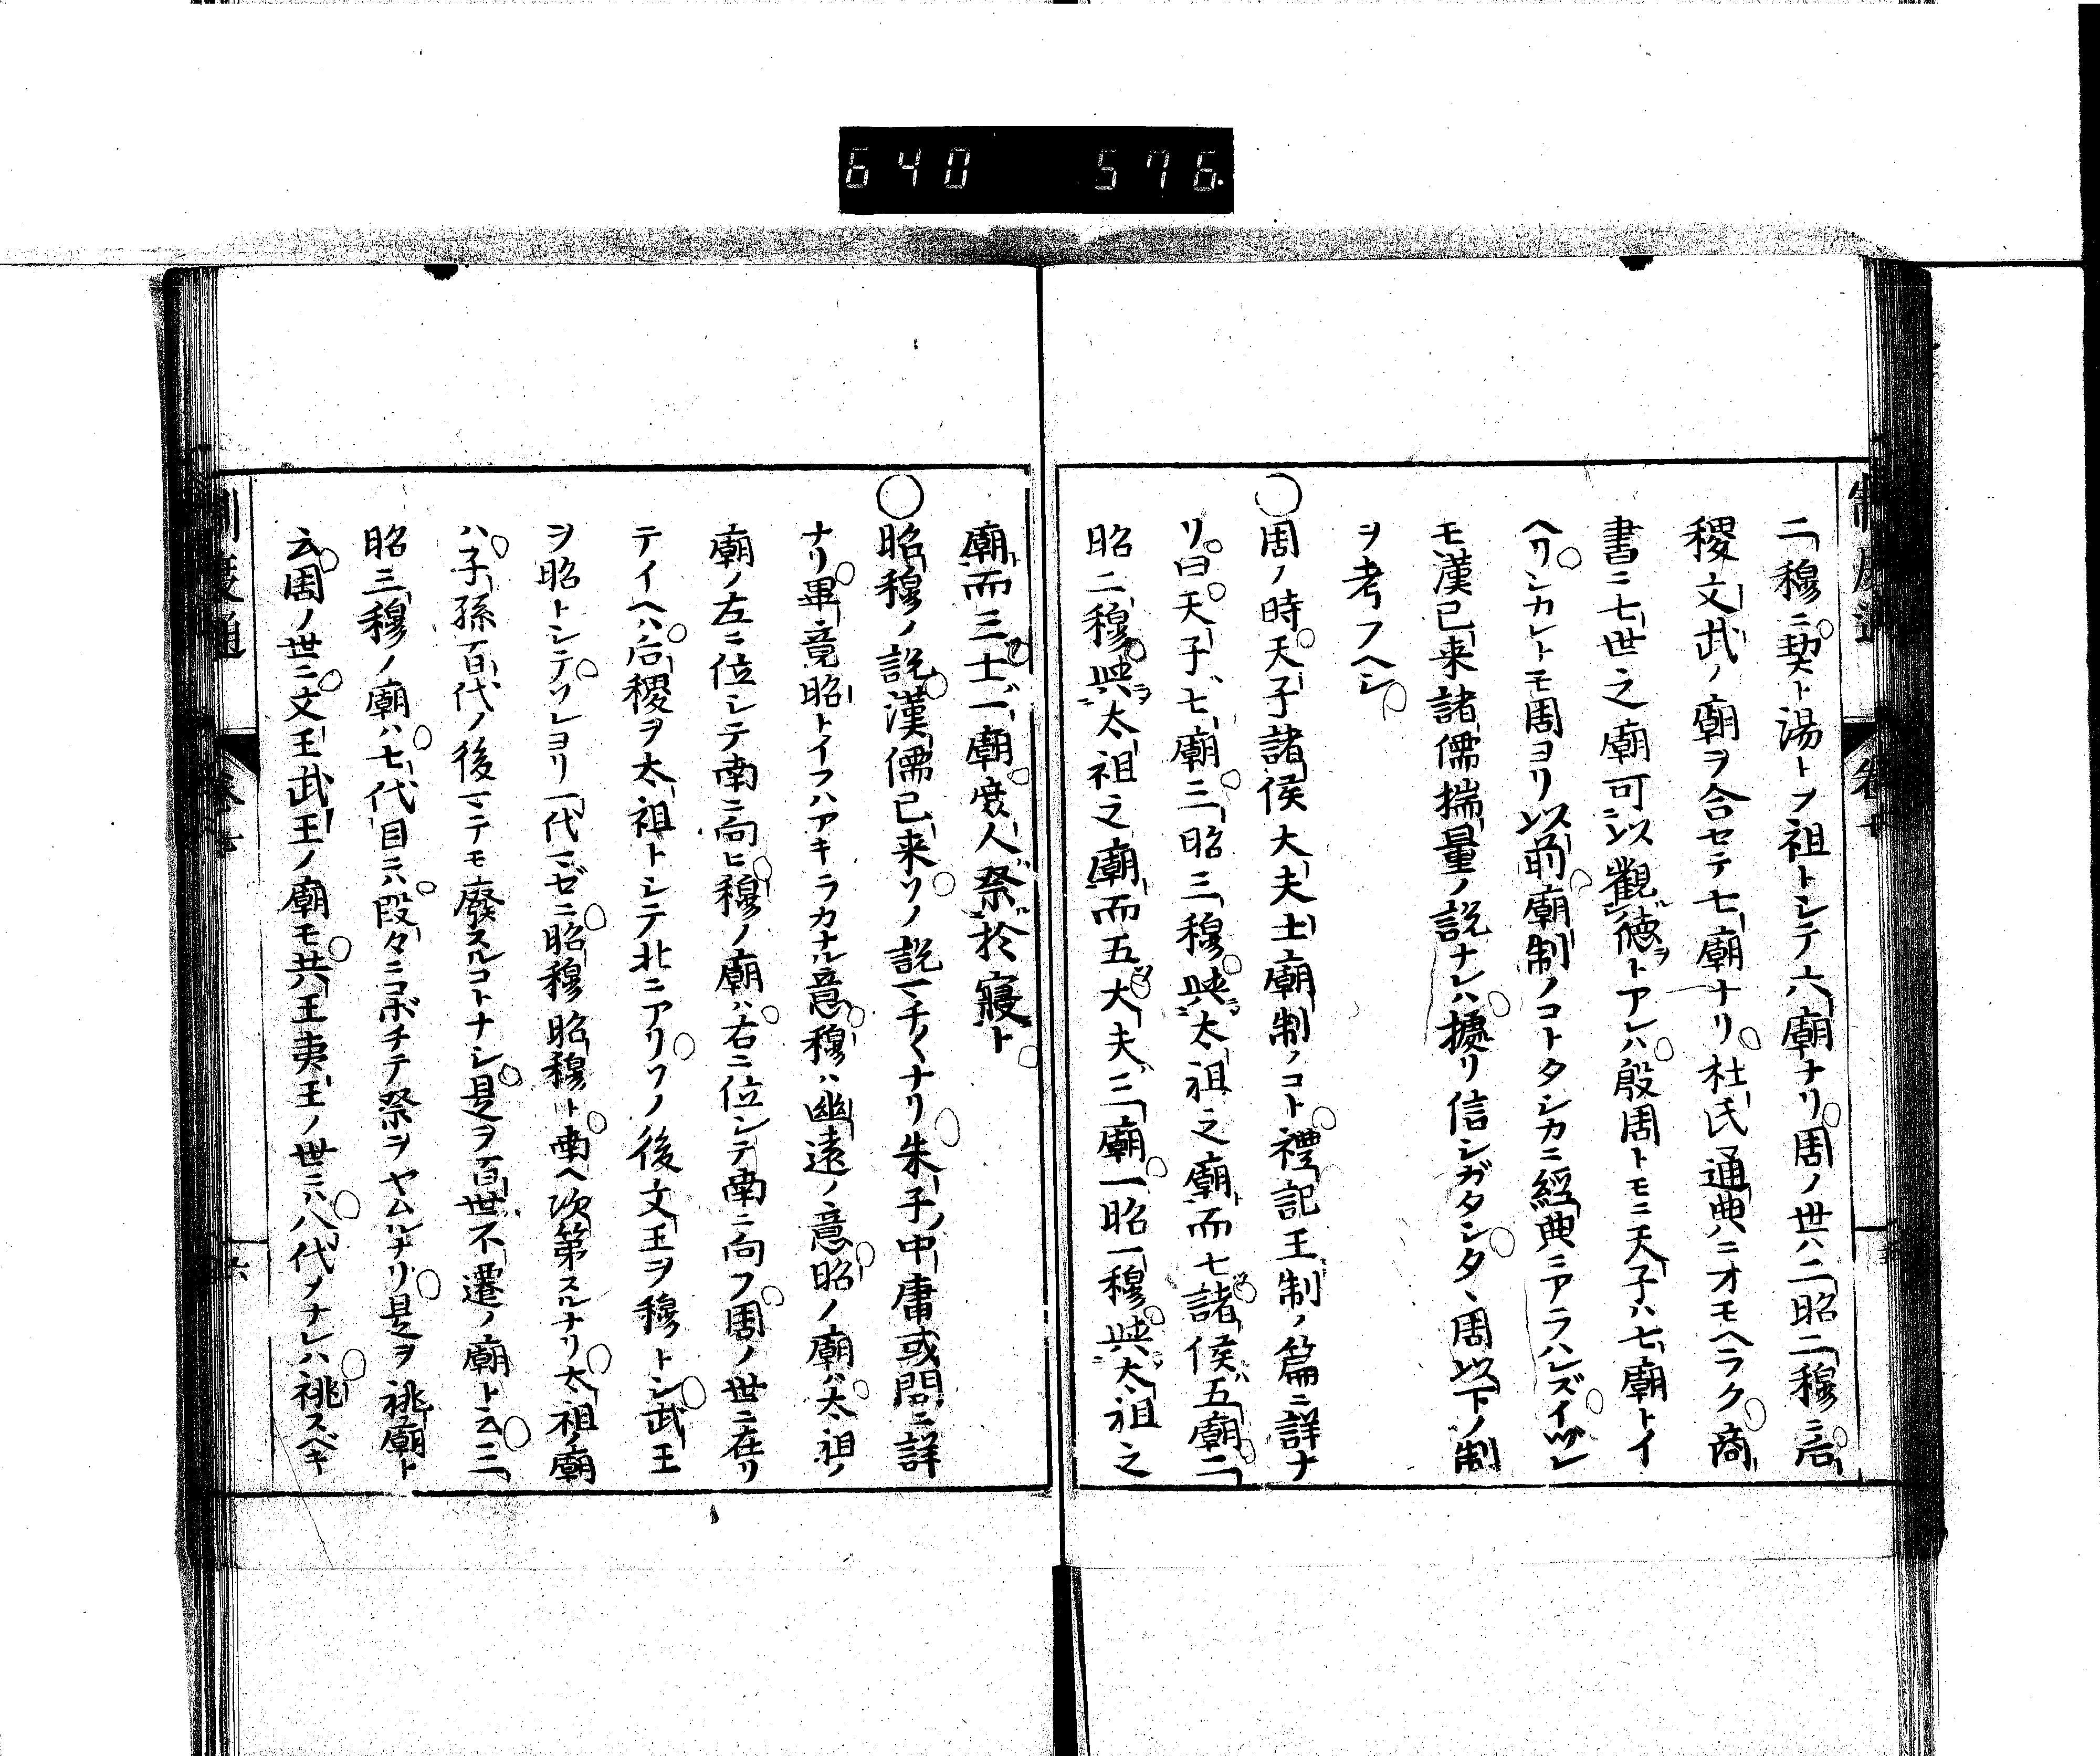 640 576
二穆ニ契ト湯トヲ祖トシテ六廟ナリ周ノ世ハ二昭二穆ニ后
稷文武ノ廟ヲ合セテ七廟ナリ杜氏通典ニオモヘラク商
書ニ七世之廟可以觀德トアレハ殷周トモニ天子ハ七廟トイ
ヘリシカレトモ周ヨリ以前廟制ノコトタシカニ經典ニアラハレズイツレ
モ漢已来諸儒揣量ノ説ナレハ據リ信シガタシタヽ周以下ノ制
ヲ考フヘシ
○周ノ時天子諸侯大夫士廟制ノコト禮記王制ノ篇ニ詳ナ
リ曰天子七廟三昭三穆與太祖之廟而七諸侯五廟二
昭二穆與太祖之廟而五大夫三廟一昭一穆與太祖之
廟而三士一廟庶人祭於寢ト
○昭穆ノ説漢儒已来ソノ説マチ〱ナリ朱子ノ中庸或問ニ詳
ナリ畢竟昭トイフハアキラカナル意穆ハ幽遠ノ意昭ノ廟ハ太祖ノ
廟ノ左ニ位シテ南ニ向ヒ穆ノ廟ハ右ニ位シテ南ニ向フ周ノ世ニ在リ
テイヘハ后稷ヲ太祖トシテ北ニアリソノ後文王ヲ穆トシ武王
ヲ昭トシテソレヨリ一代マゼニ昭穆昭穆ト南ヘ次第スルナリ太祖ノ廟
ハ子孫百代ノ後マテモ廢スルコトナシ是ヲ百世不遷ノ廟ト云三
昭三穆ノ廟ハ七代目ニハ段々ニコボチテ祭ヲヤムルナリ是ヲ祧廟ト
云周ノ世ニ文王武王ノ廟モ共王夷王ノ世ニハ八代ノナレハ祧スベキ
制度通